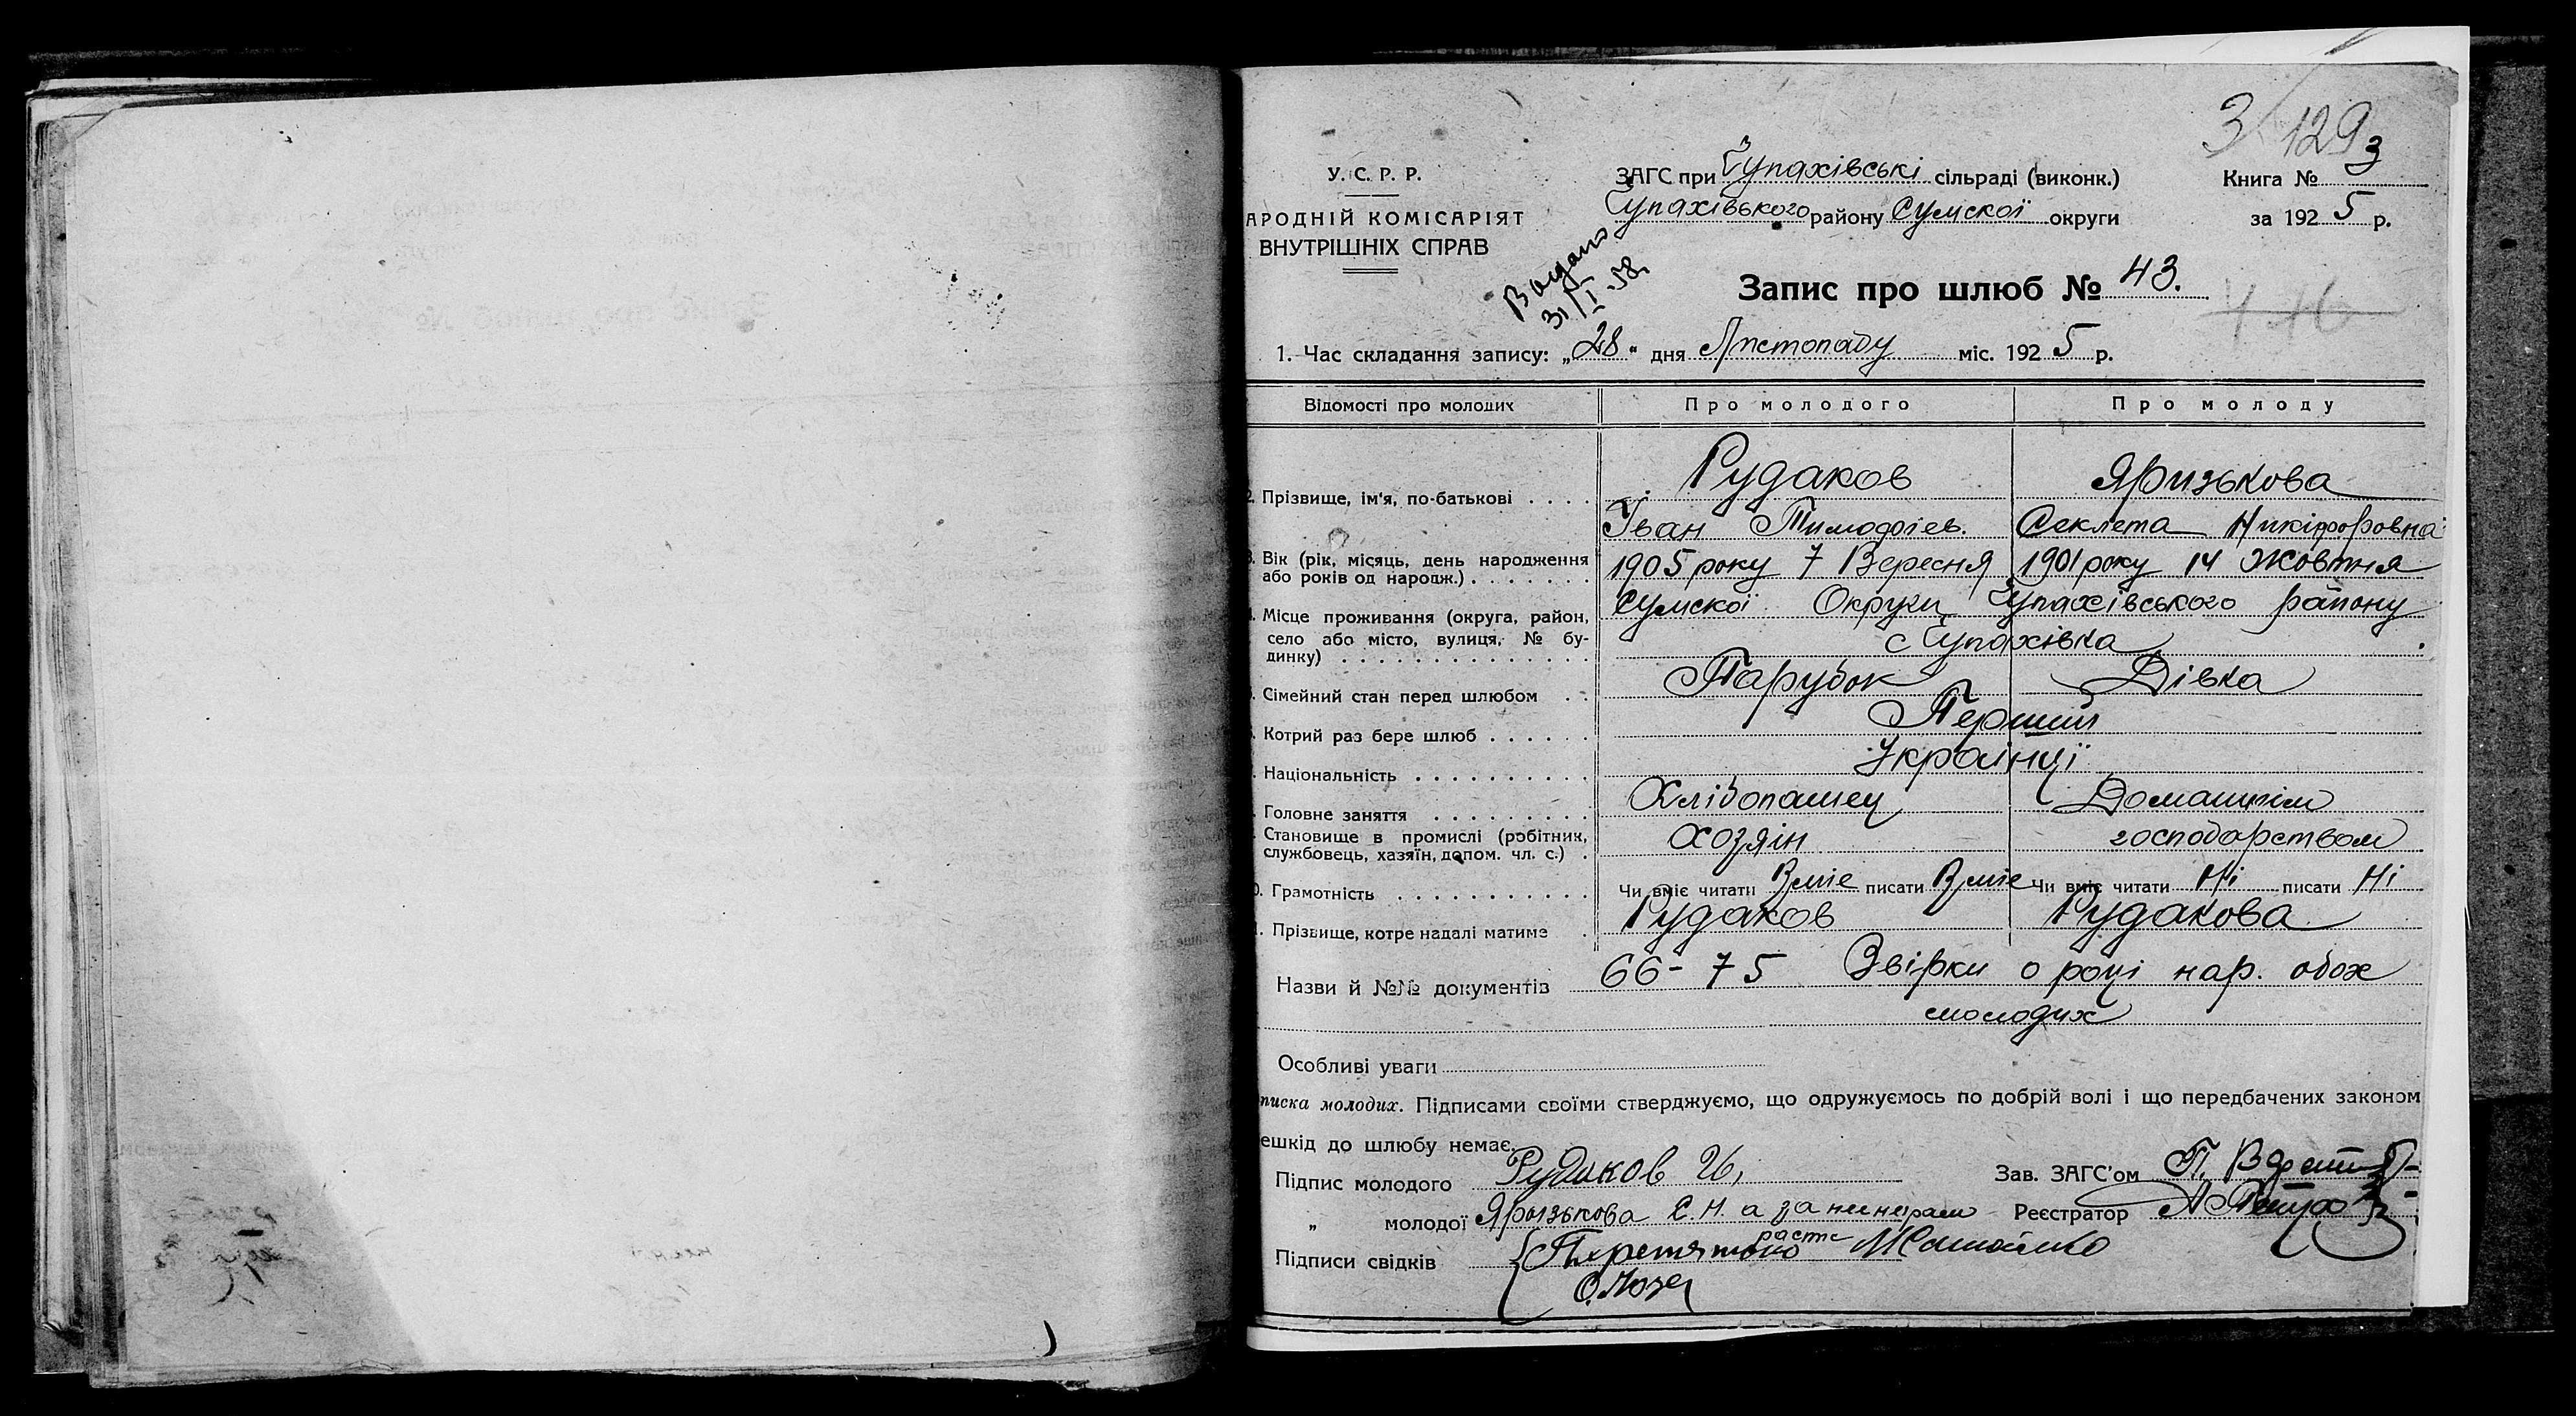 3 129
У. С. Р. Р.
АРОДНІЙ КОМІСАРІЯТ
ВНУТРІШНІХ СПРАВ
ЗАГС при Чупахівські сільраді (виконк.)
Чупахівького району Сумскої округи
Книга № 3
за 192 5 р.
Видано
31/I 58.
Запис про шлюб № 43.
1. Час складання запису: „28" дня Листопаду міс. 192 5 р.
Відомості про молодих Про молодого Про молоду
2. Прізвище, ім'я, по-батькові . . . . Рудаков Яризькова
Іван Тимофіев. Секлета Никіфоровна
3. Вік (рік, місяць, день народження
або років од нарощж.) . . . . . . . 1905 року 7 Вересня 1901 року 14 Жовтня
4. Місце проживання (округа, район,
село або місто, вулиця, № бу-
динку) . . . . . . . . . . . . . . .
Сумскої Округи Чупахівського району
с Чупахівка
. Сімейний стан перед шлюбом . . Парубок Дівка
. Котрий раз бере шлюб . . . . . . Перший
. Національність . . . . . . . . . . Украінці
. Головне заняття . . . . . . . . . Хлібопашец Домашнім
. Становище в промислі (робітник,
службовець, хазяїн, допом. чл. с.) . хозяін господарством
0. Грамотність . . . . . . . . . . . Чи вміє читати Вміе писати Вміе Чи вміє читати Ні писати Ні
1. Прізвище, котре надалі матиме . Рудаков Рудакова
Назви й №№ документів 66-75 Звірки о році нар. обох
молодих
Особливі уваги
писка молодих. Підписами своїми стверджуємо, що одружуємось по добрій волі і що передбачених законом
ешкід до шлюбу немає.
Підпис молодого Рудаков И,
Зав. ЗАГС'ом П.
„ молодої Ярызькова С. Н. а за
Реєстратор А Петухов
Підписи свідків Перетятько